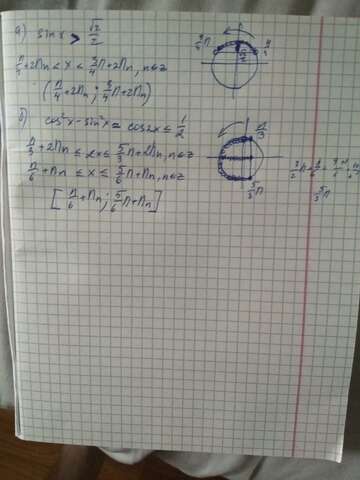 а) sin x > √2/2
π/4 + 2πn < x < 3/4π + 2πn, n∈z
(π/4 + 2πn ; 3/4π + 2πn)
б) cos²x - sin²x = cos2x ≤ 1/2
π/3 + 2πn ≤ 2x ≤ 5/3π + 2πn, n∈z
π/6 + πn ≤ x ≤ 5/6π + πn, n∈z
[π/6 + πn ; 5/6π + πn]
3/4π
√2/2
π/4
π/3
5/3π
5/3π